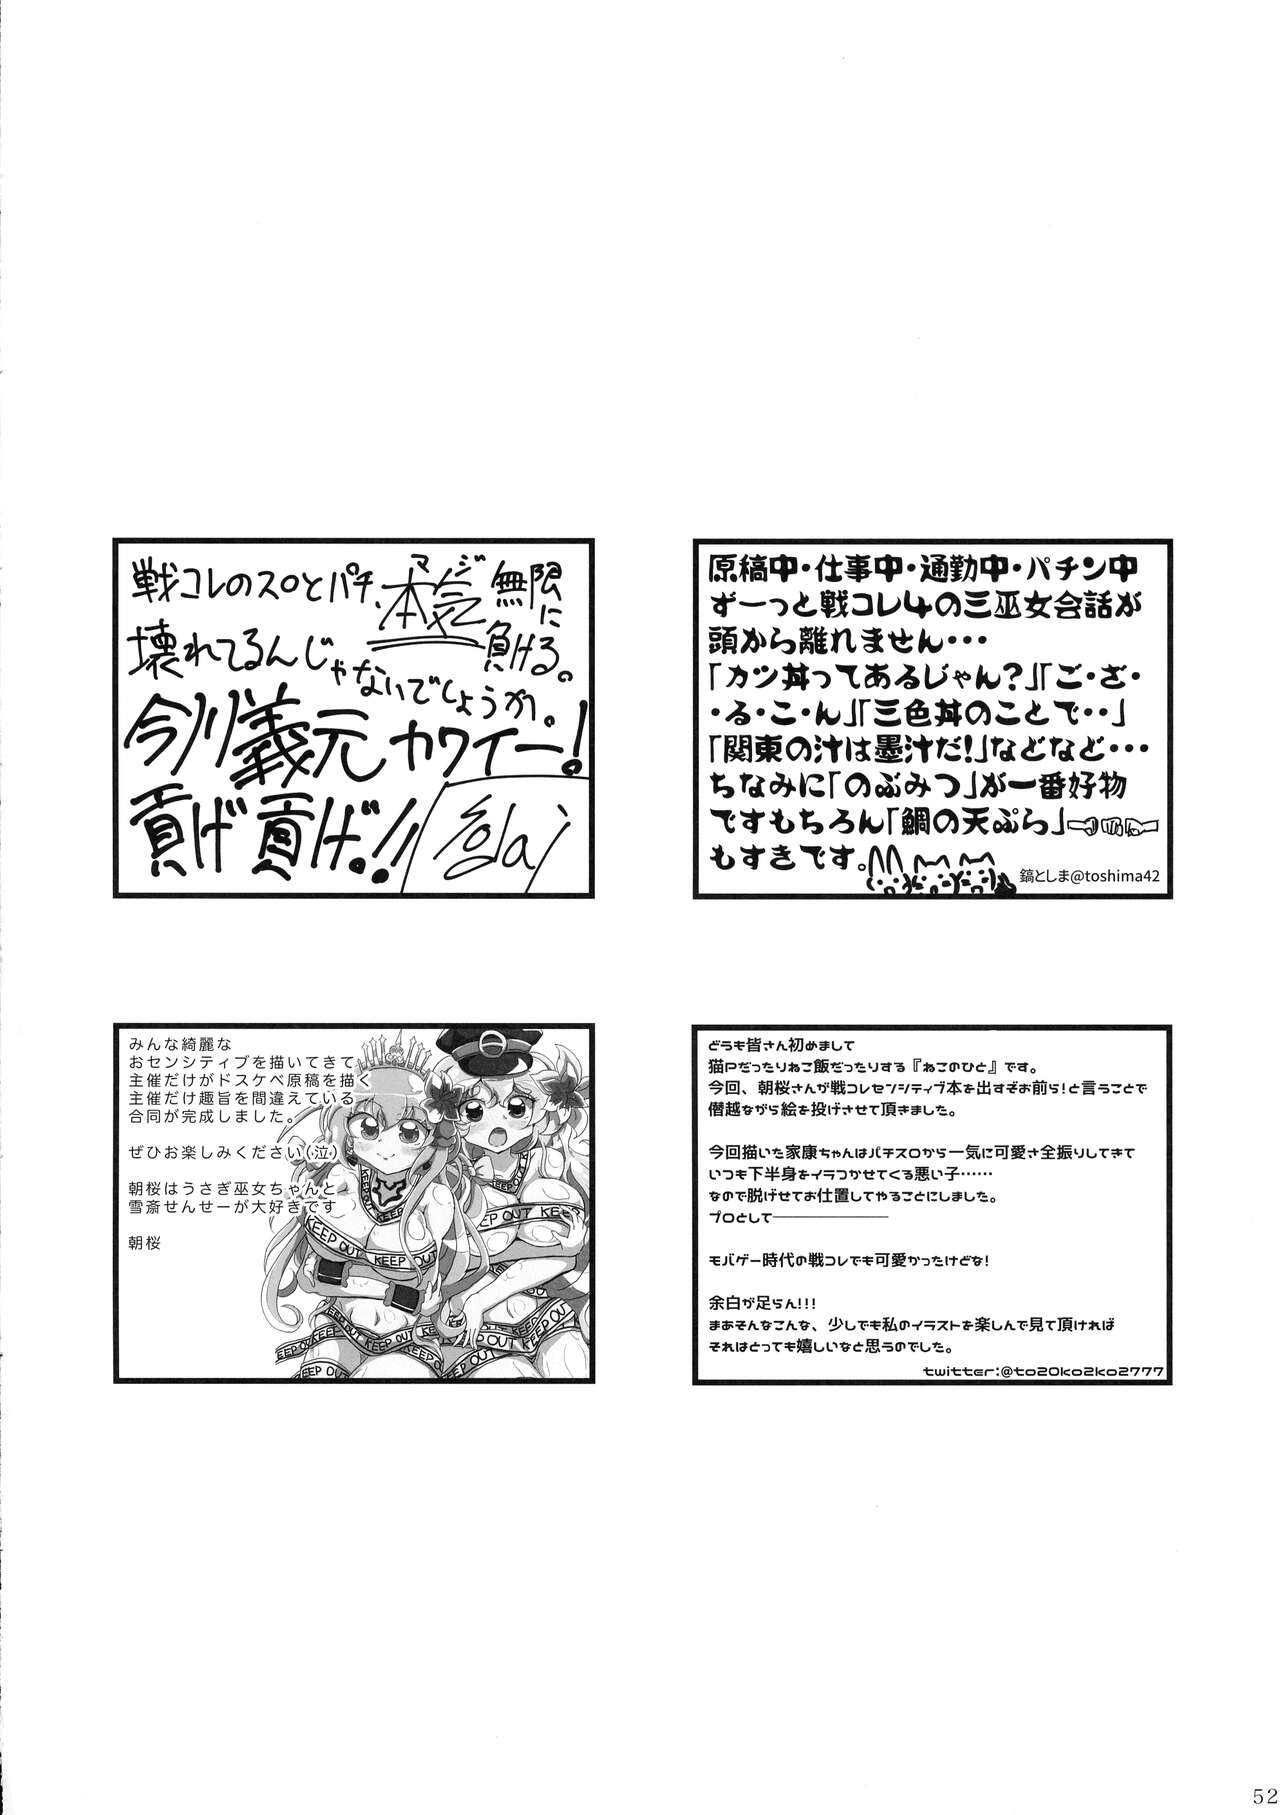 原稿中・仕事中・通勤中・パチン中
ずーっと戦コレ4の三巫女会話が
頭から離れません・・・
「カツ丼ってあるじゃん?」「ご・ざ・
・る・こ・ん」「三色丼のことで・・」
「関東の汁は墨汁だ!」などなど・・・
ちなみに「のぶみつ」が一番好物
ですもちろん「鯛の天ぷら」
もすきです。
鎬としま@toshima42
戦コレのスロとパチ、本気マジ無限に負ける。
壊れてるんじゃないでしょうか。
今川義元カワイー!
貢げ貢げ!!
どうも皆さん初めまして
猫Pだったりねこ飯だったりする『ねこのひと』です。
今回、朝桜さんが戦コレセンシティブ本を出すぞお前ら!と言うことで
僭越ながら絵を投げさせて頂きました。
今回描いた家康ちゃんはパチスロから一気に可愛さ全振りしてきて
いつも下半身をイラつかせてくる悪い子……
なので脱げせてお仕置してやることにしました。
プロとして――――――
モバゲー時代の戦コレでも可愛かったけどな!
余白が足らん!!!
まあそんなこんな、少しでも私のイラストを楽しんで見て頂ければ
それはとっても嬉しいなと思うのでした。
twitter:@to20ko2ko2777
みんな綺麗な
おセンシティブを描いてきて
主催だけがドスケベ原稿を描く
主催だけ趣旨を間違えている
合同が完成しました。
ぜひお楽しみください(泣)
朝桜はうさぎ巫女ちゃんと
雪斎せんせーが大好きです
朝桜
KEEP OUT
KEEP OUT
KEEP OUT
KEEP OUT
52